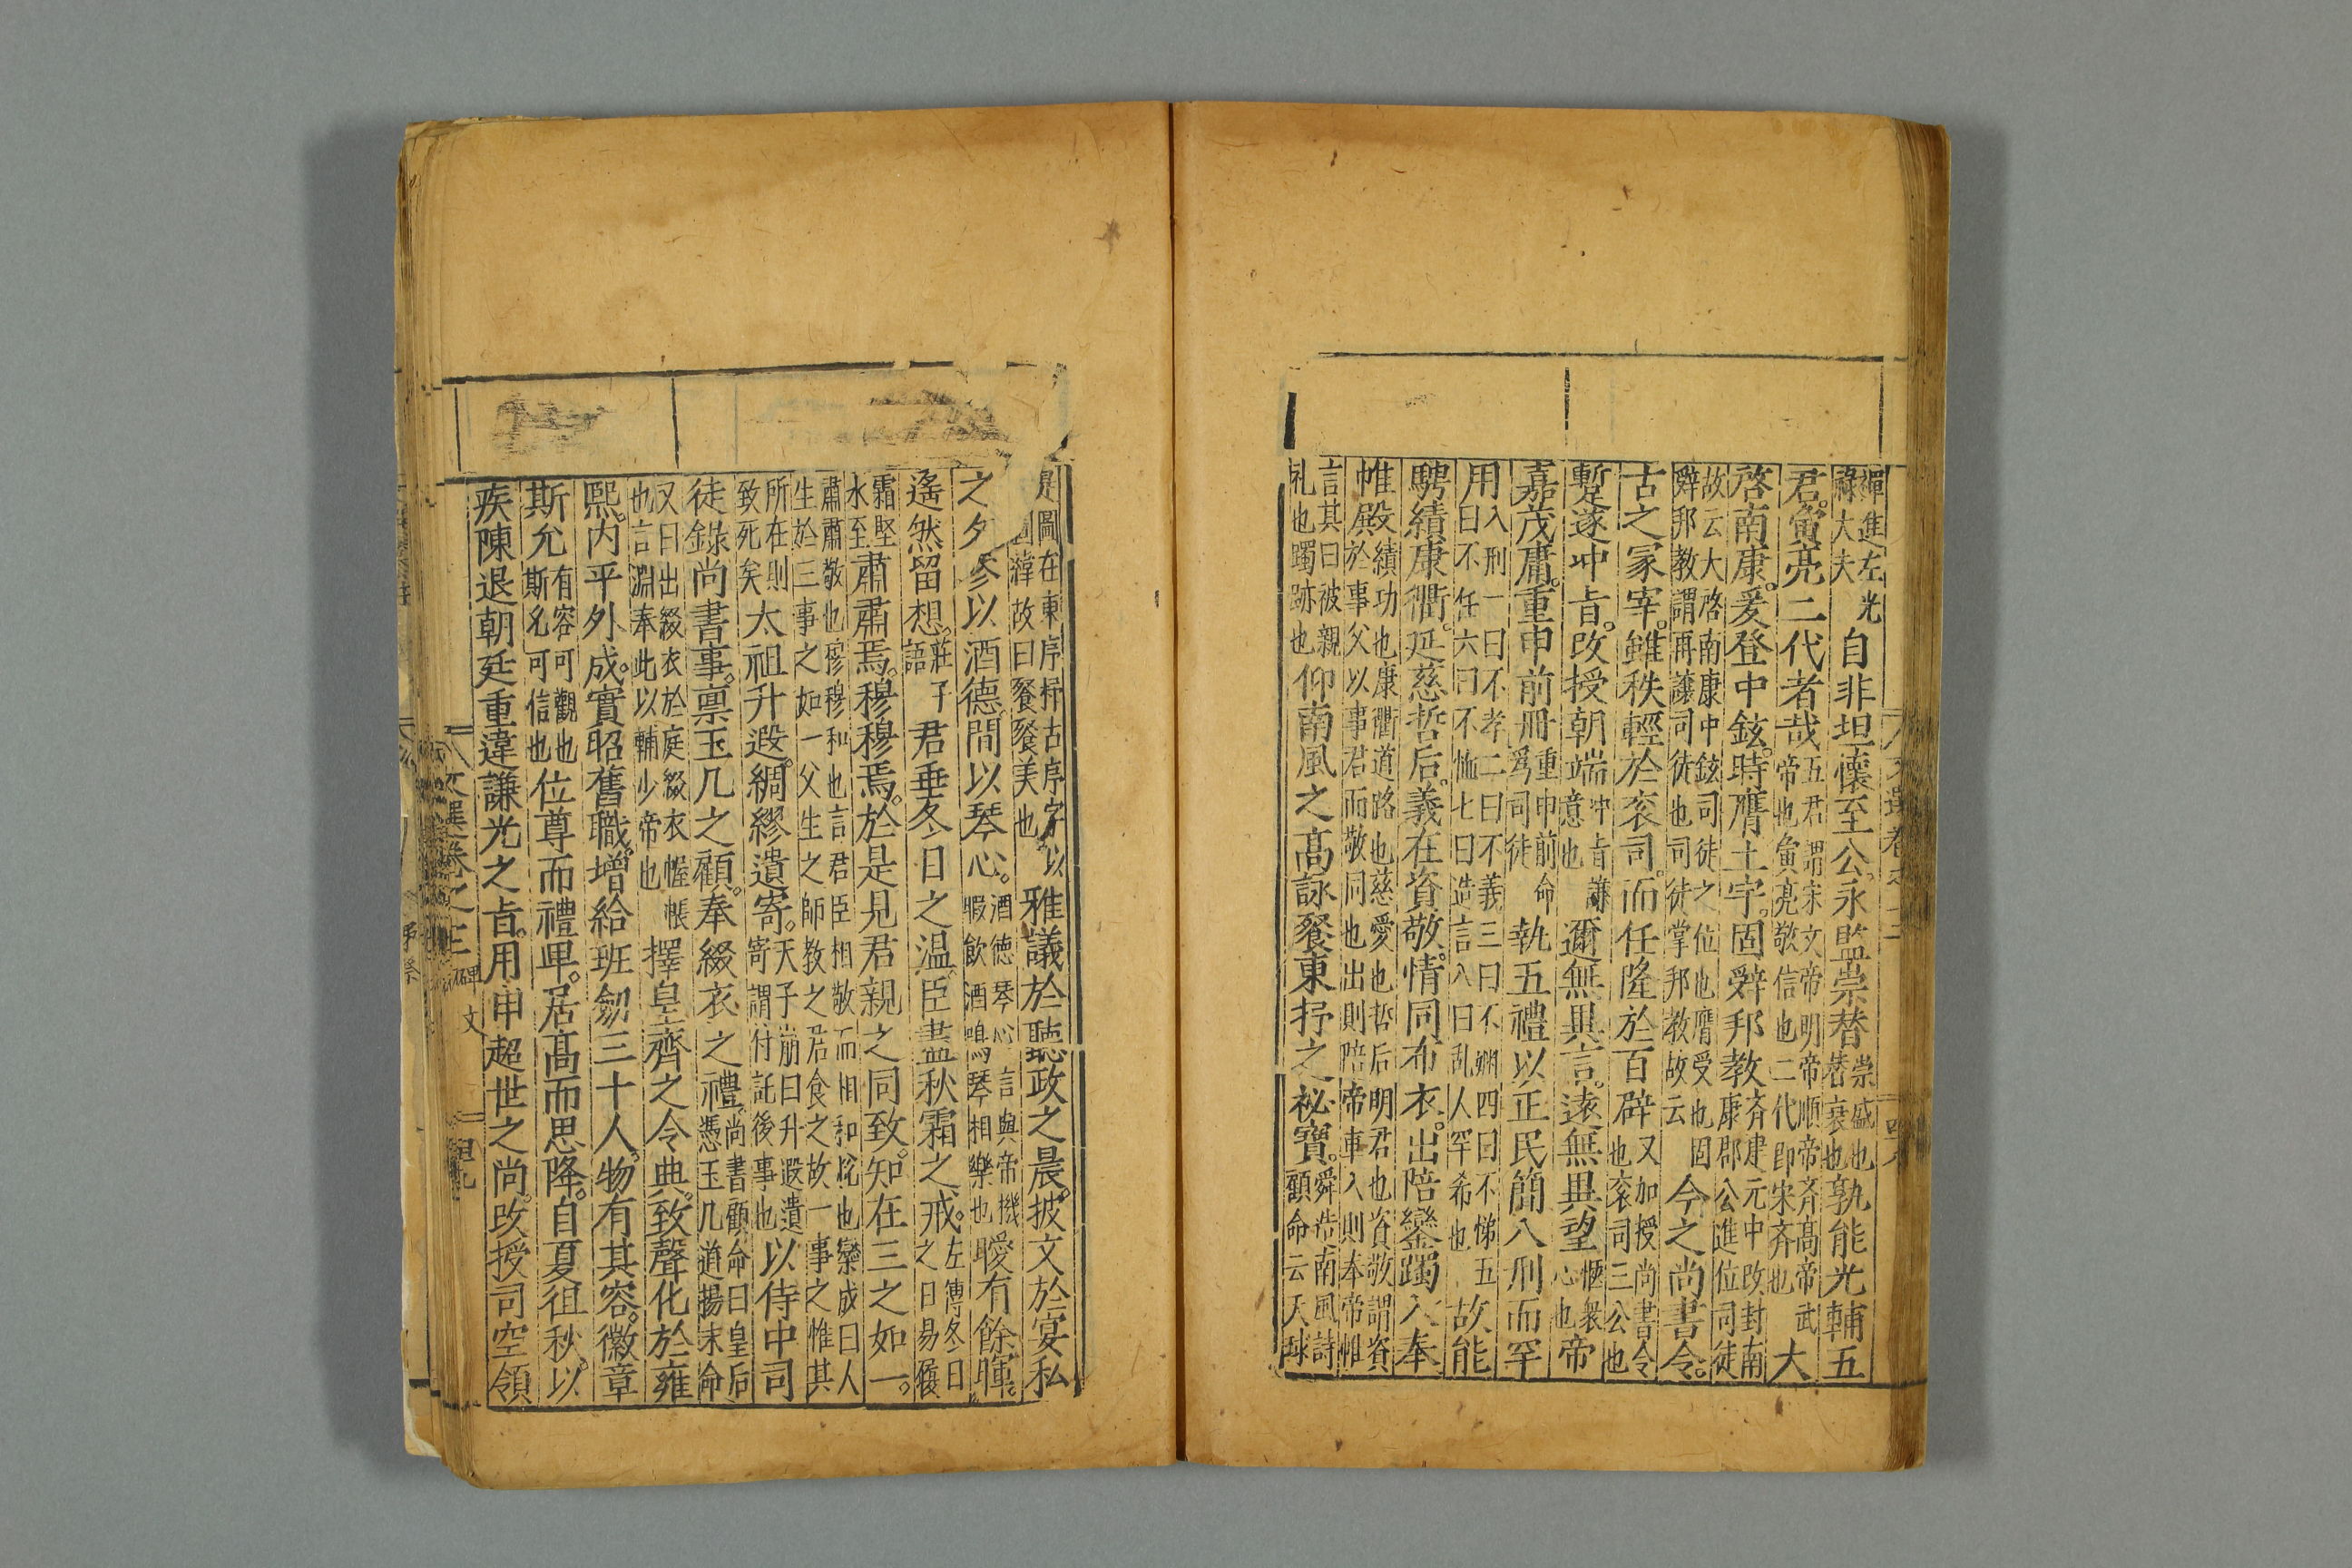 禪進左光
祿大夫
自非坦懷至公。永監崇替
崇盛也
替衰也
孰能光輔五
君。寅亮二代者哉
五君謂宋文帝明帝順帝齊高帝武
帝也寅亮敬信也二代卽宋齊也
大
啓南康。爰登中鉉。時膺土宇。固辭邦教
齊建元中改封南
康郡公進位司徒
故云大啓南康中鉉司徒之位也膺受也固
辭邦教謂再讓司徒也司徒掌邦教故云
今之尚書令。
古之冢宰。雖秩輕於衮司。而任隆於百辟
又加授尚書令
也衮司三公也
暫遂冲旨。改授朝端
冲旨謙
意也
邇無異言。遠無異望
愜衆
心也
帝
嘉茂庸。重申前冊
重申前命
爲司徒
執五禮以正民簡八刑而罕
用
入刑一曰不孝二曰不義三曰不婣四曰不悌五
曰不任六曰不恤七曰造言八曰乱人罕希也
故能
騁績康衢。延慈哲后。義在資敬。情同布衣。出陪鑾躅入奉
帷殿
績功也康衢道路也慈愛也哲后明君也資敬謂資
於事父以事君而敬同也出則陪帝車入則奉帝帷
帷
言其曰被親
礼也躅跡也
仰南風之高詠飱東抒之祕寶。
舜造南風詩
顧命云天球
是圖在東序抒古序字
圖諱故曰飱飱美也
以雅議於聽政之晨。披文於宴私
之夕參以酒德。間以琴心。
酒德琴心言與帝機
暇飲酒鳴琴相樂也
曖有餘暉。
遙然留想。
莊子
語
君垂冬日之温。臣盡秋霜之戒。
左傳冬日
之日易履
霜堅
氷至
肅肅焉。穆穆焉。於是見君親之同致。知在三之如一。
肅肅敬也穆穆和也言君臣相敬而相和悅也欒成曰人
生於三事之如一父生之師教之君食之故一事之惟其
所在則
致死矣
太祖升遐。綢繆遺寄。
天子崩曰升遐遺
寄謂付託後事也
以侍中司
徒錄尚書事。禀玉几之顧。奉綴衣之禮。
尚書顧命曰皇后
憑玉几道揚末命
又曰出綴衣於庭綴衣幄帳
也言淵奉此以輔少帝也
擇皇齊之令典。致聲化於雍
熙。内平外成。實昭舊職。增給班劒三十人。物有其容。徽章
斯允
有容可觀也
斯允可信也
位尊而禮卑。居高而思降。自夏徂秋。以
疾陳退朝廷重違謙光之旨。用申超世之尚。改授司空領
文選卷之十二
碑文
四九